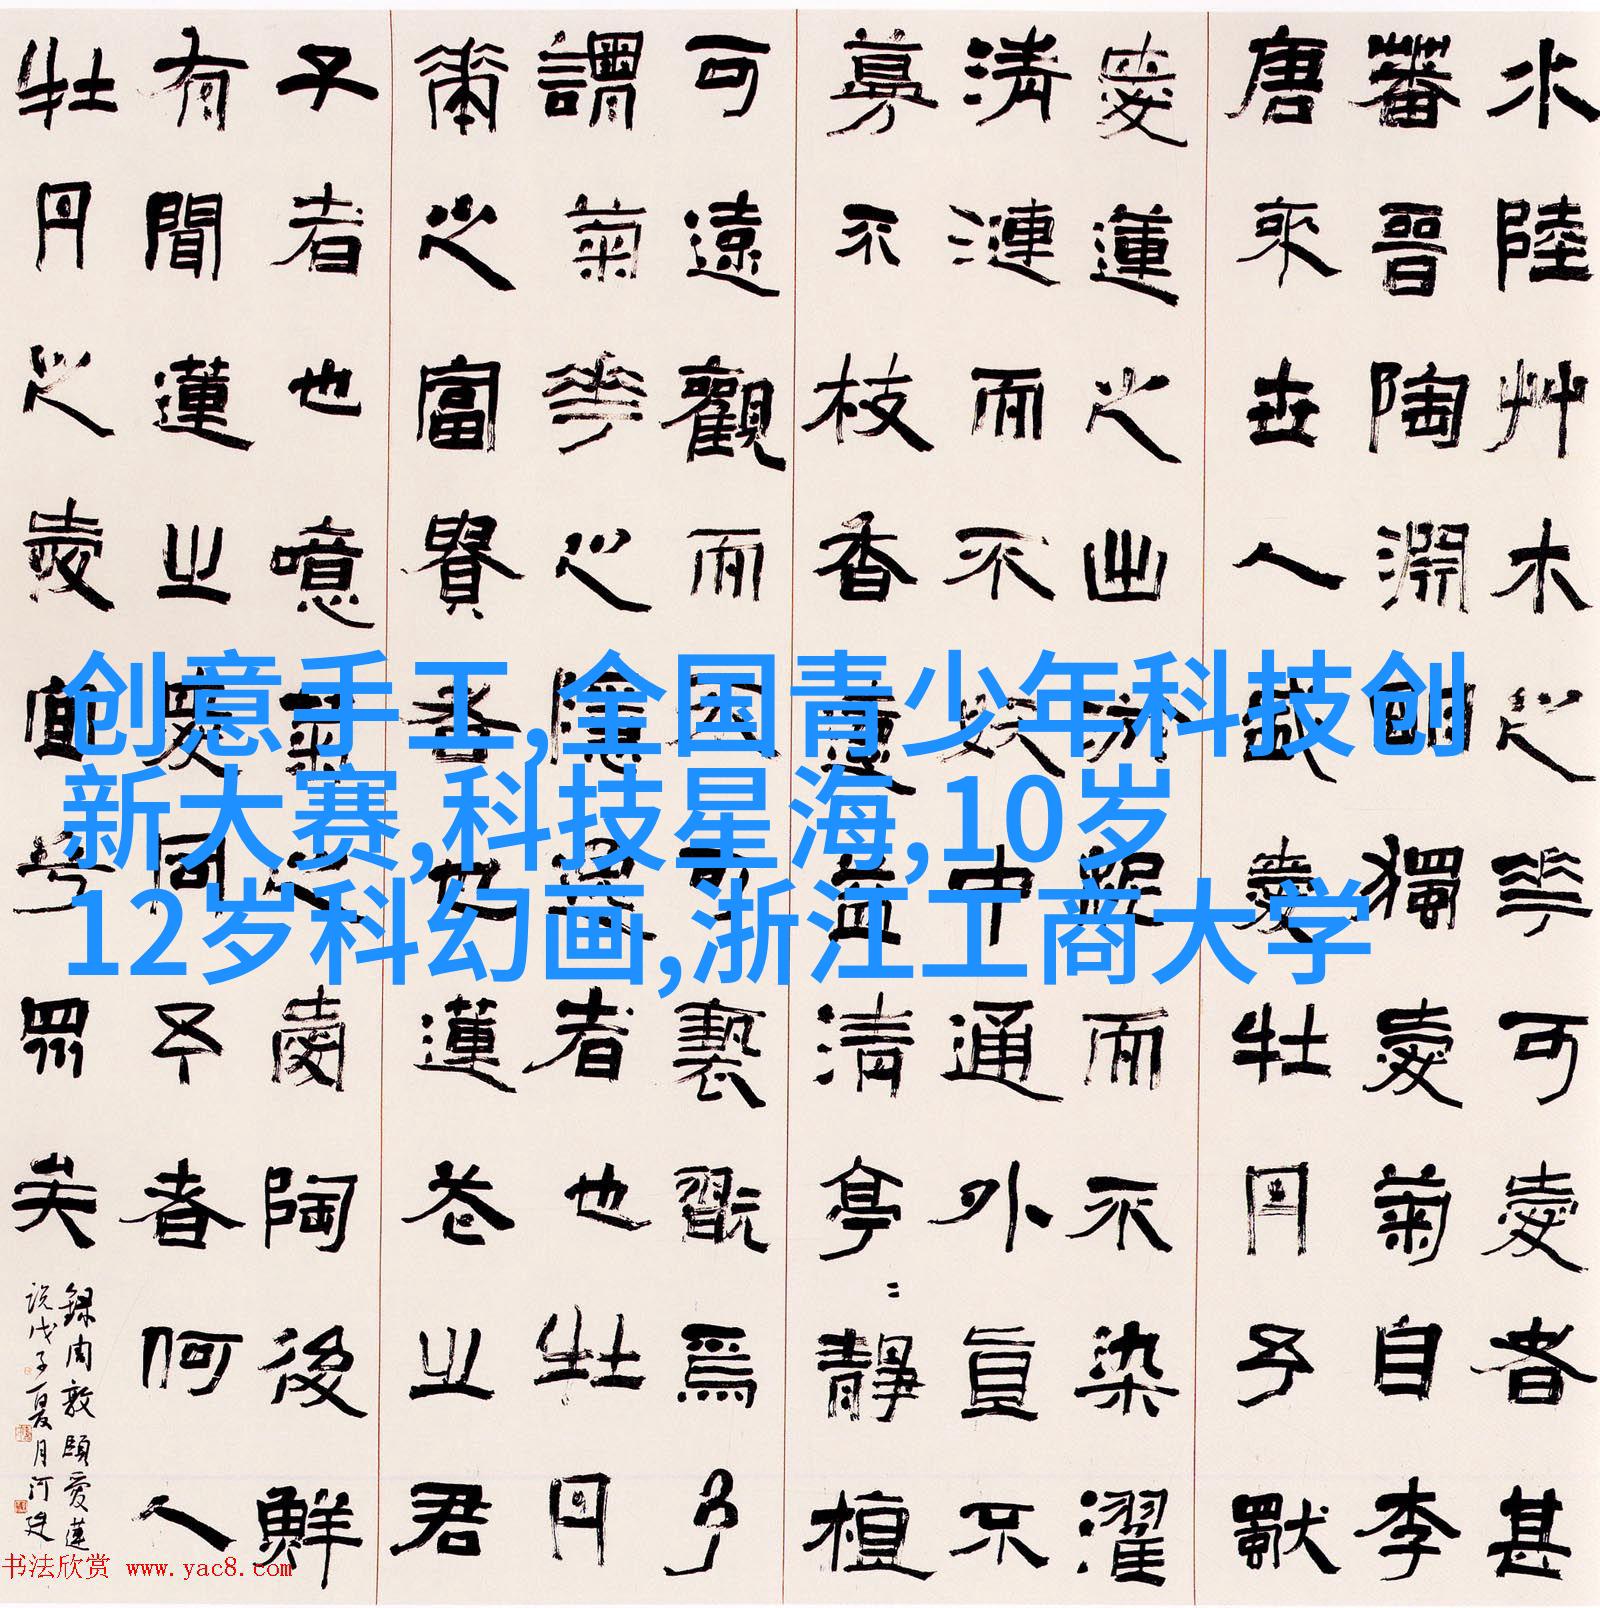 水陸艸木之花可愛者甚
蕃晉陶淵明獨愛菊自李
唐來世人盛愛牡丹予獨
愛蓮之出淤泥而不染濯
清漣而不妖中通外直不
蔓不枝香遠益清亭=靜植
可遠觀而不可褻翫焉予
謂菊花之隱逸者也牡丹
花之富貴者也蓮花之君
子者也噫菊之愛陶後鮮
有聞蓮之愛同予者何人
牡丹之愛宜乎眾矣
錄周敦頤愛蓮
說戊子夏月河建
创意手工,全国青少年科技创
新大赛,科技星海,10岁
12岁科幻画,浙江工商大学
书法欣赏 www.yac8.com